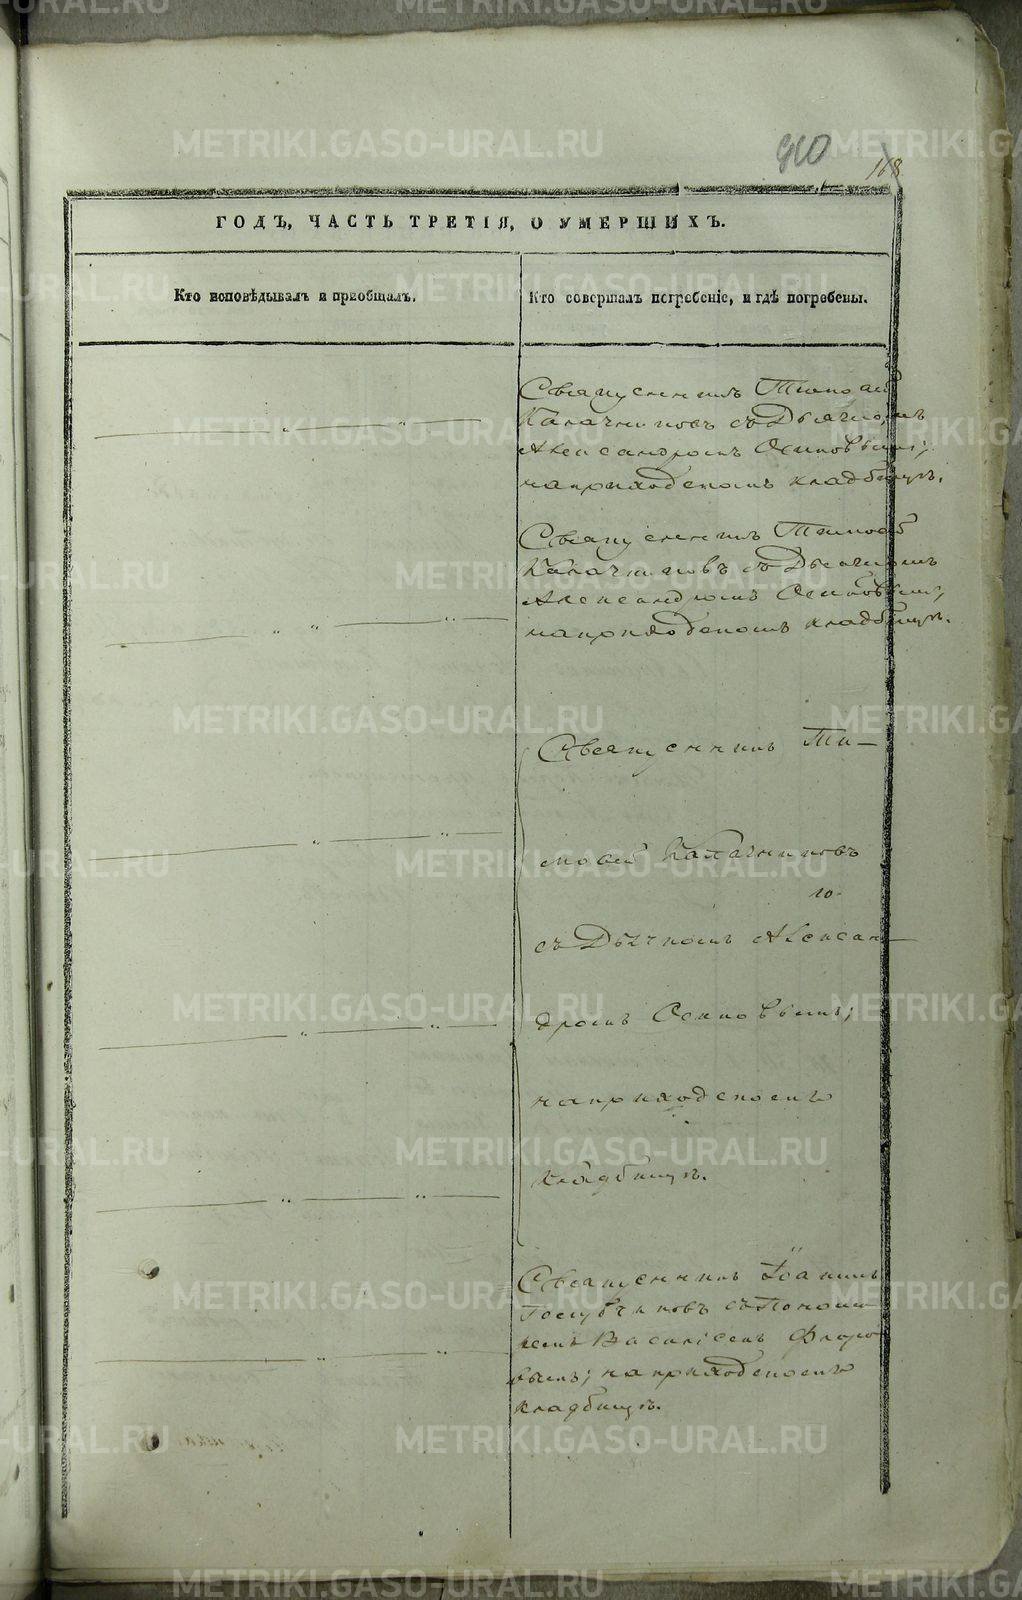 910
118
ГОДЪ, ЧАСТЬ ТРЕТІЯ, О УМЕРШИХЪ.
Кто исповѣдывалъ и пріобщалъ.
Кто совершалъ погребеніе, и гдѣ погребены.
Священникъ Тимоѳей
Калачниковъ съ Дьячкомъ
Александромъ Осиповымъ;
на приходскомъ кладбищѣ.
Священникъ Тимоѳей
Калачниковъ съ Дьячкомъ
Александромъ Осиповымъ;
на приходскомъ кладбищѣ.
Священникъ Ти-
моѳей Калачниковъ
съ Дьячкомъ Алексан-
дромъ Осиповымъ;
на приходскомъ
кладбищѣ.
Священникъ Іоаннъ
Голубчиковъ съ Понома-
ремъ Василіемъ Флоро
вымъ; на приходскомъ
кладбищѣ.
METRIKI.GASO-URAL.RU